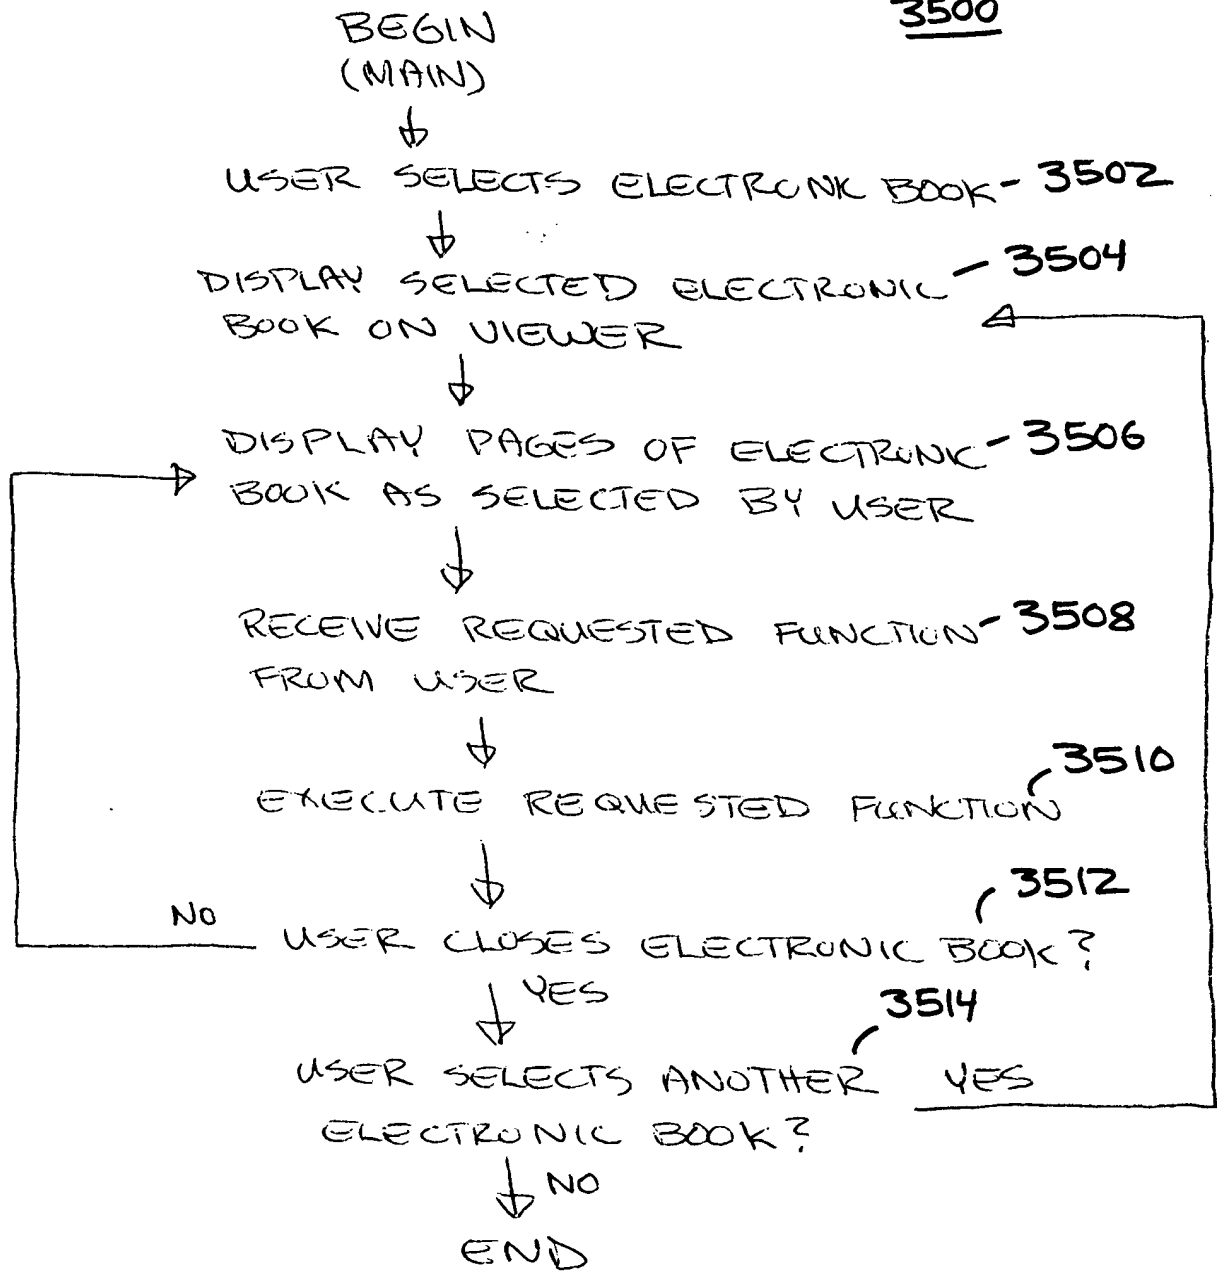 3500
BEGIN
(MAIN)
USER SELECTS ELECTRONIC BOOK - 3502
DISPLAY SELECTED ELECTRONIC - 3504
BOOK ON VIEWER
DISPLAY PAGES OF ELECTRONIC - 3506
BOOK AS SELECTED BY USER
RECEIVE REQUESTED FUNCTION - 3508
FROM USER
3510
EXECUTE REQUESTED FUNCTION
3512
NO
USER CLOSES ELECTRONIC BOOK?
YES
3514
USER SELECTS ANOTHER YES
ELECTRONIC BOOK?
NO
END